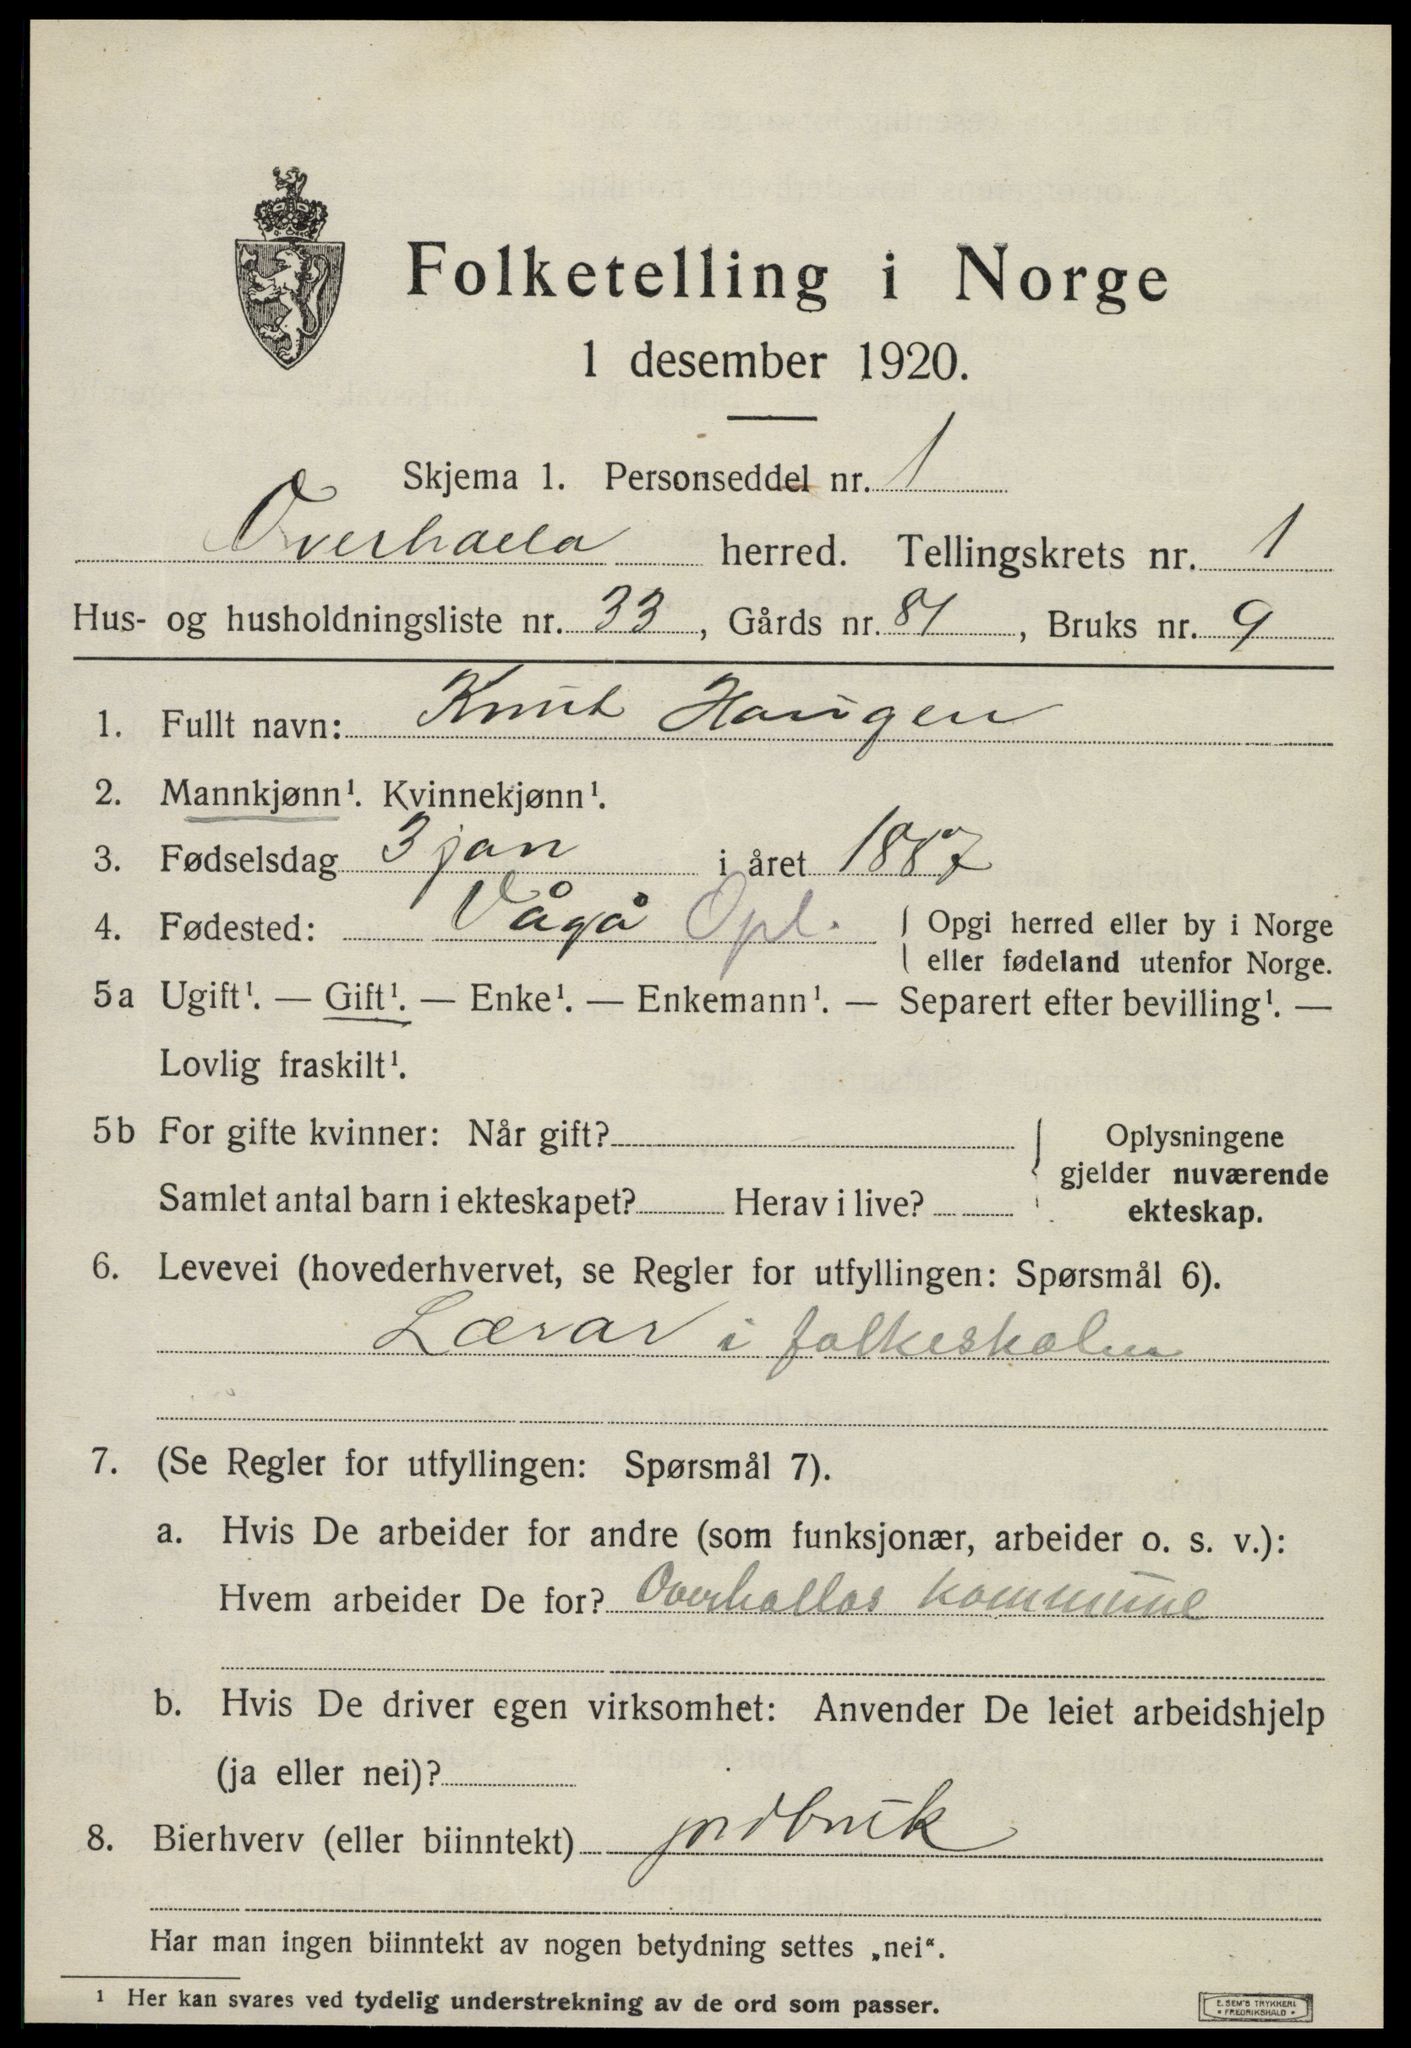 Folketelling i Norge
1 desember 1920.
Skjema 1. Personseddel nr. 1
Overhalla herred. Tellingskrets nr. 1
Hus- og husholdningsliste nr. 33, Gårds nr. 81, Bruks nr. 9
1. Fullt navn: Knut Haugen
2. Mannkjønn¹. Kvinnekjønn¹.
3. Fødselsdag 3 jan i året 1887
4. Fødested: Vågå Opl. { Opgi herred eller by i Norge
eller fødeland utenfor Norge.
5a Ugift¹. — Gift¹. — Enke¹. — Enkemann¹. — Separert efter bevilling¹. —
Lovlig fraskilt¹.
5b For gifte kvinner: Når gift? { Oplysningene
gjelder nuværende
Samlet antal barn i ekteskapet? Herav i live? ekteskap.
6. Levevei (hovederhvervet, se Regler for utfyllingen: Spørsmål 6).
Lærar i folkeskolen
7. (Se Regler for utfyllingen: Spørsmål 7).
a. Hvis De arbeider for andre (som funksjonær, arbeider o. s. v.):
Hvem arbeider De for? Overhallas kommune
b. Hvis De driver egen virksomhet: Anvender De leiet arbeidshjelp
(ja eller nei)?
8. Bierhverv (eller biinntekt) jordbruk
Har man ingen biinntekt av nogen betydning settes „nei“.
¹ Her kan svares ved tydelig understrekning av de ord som passer.
E. SEM'S TRYKKERI
• FREDRIKSHALD •